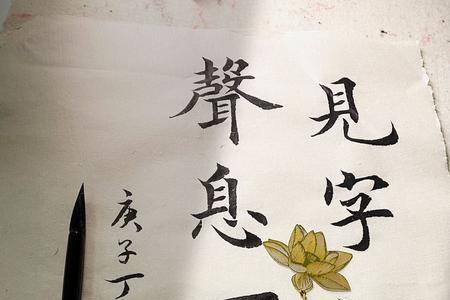 見字
聲息
庚子丁